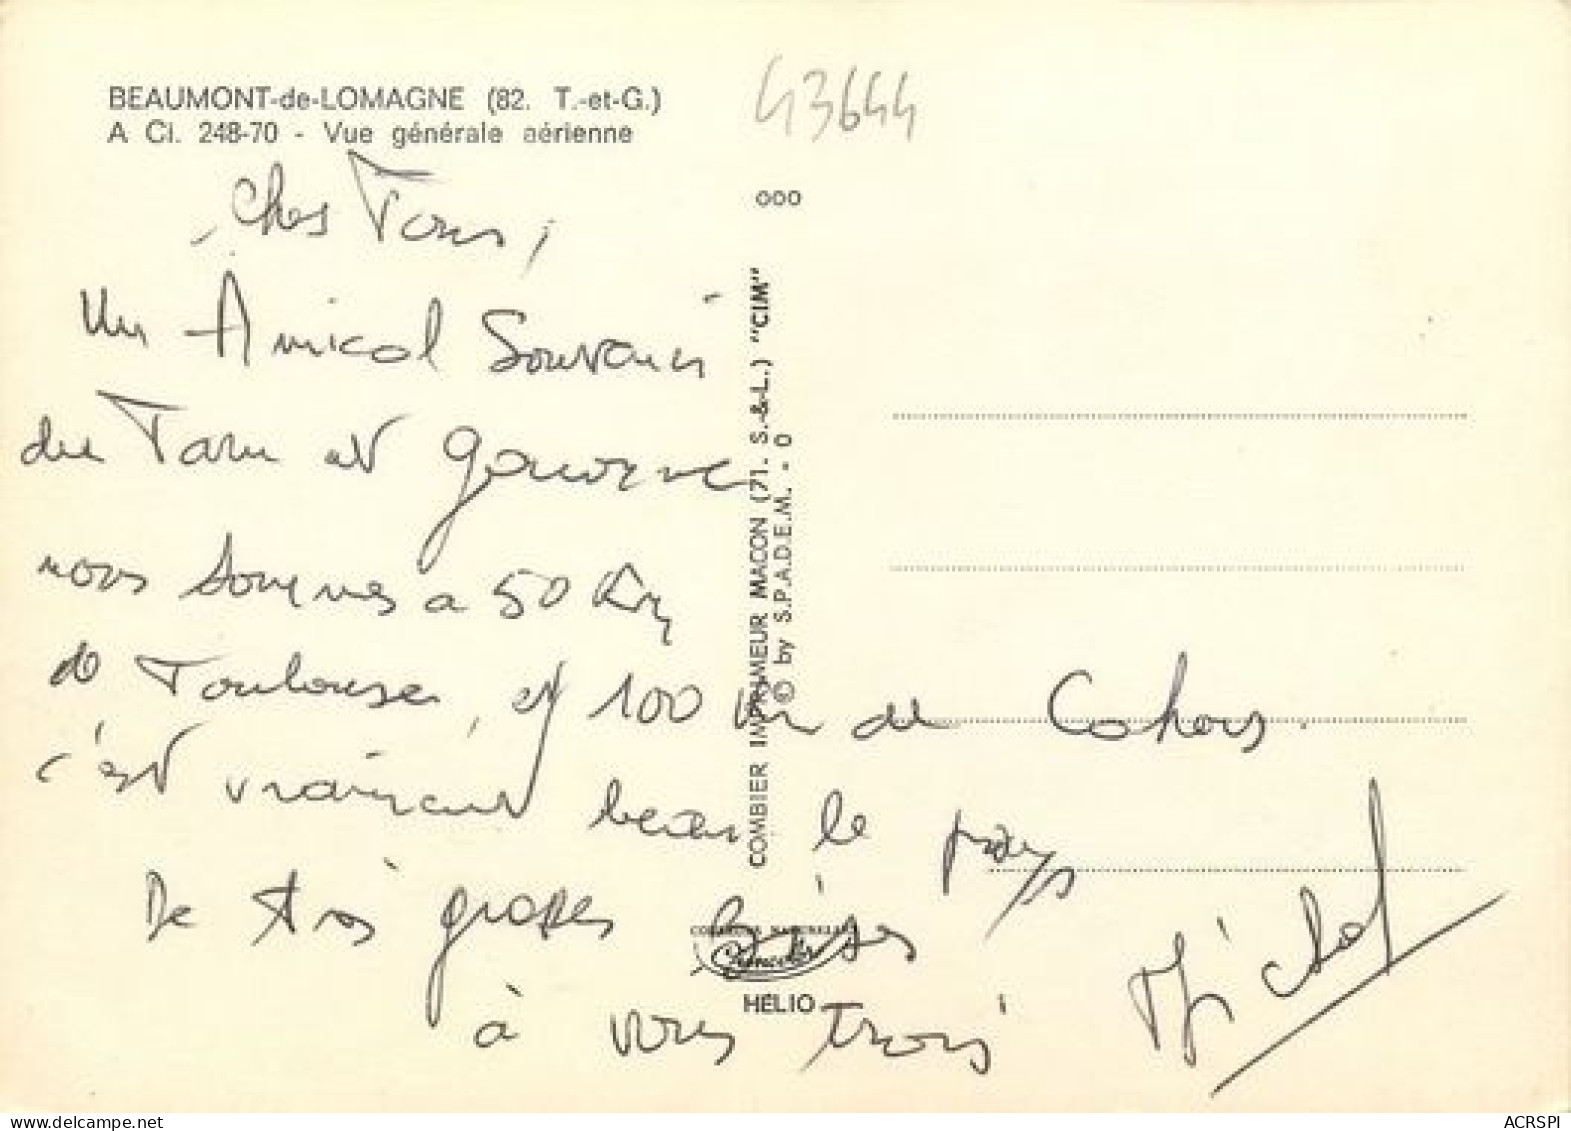 BEAUMONT-de-LOMAGNE (82. T.-et-G.)
A CI. 248-70 - Vue générale aérienne
43644
Chers Tous,
Un Amical Souvenir
du Tarn et Garonne
nous sommes a 50 Km
de Toulouse, et 100 Km de Cahors.
c'est vraiment beau le pays
De très grosses Bises
à vous trois
Michel
000
COMBIER IMPRIMEUR MACON (71. S.-&-L.) "CIM"
© by S.P.A.D.E.M. - 0
HÉLIO
delcampe.net
ACRSPI